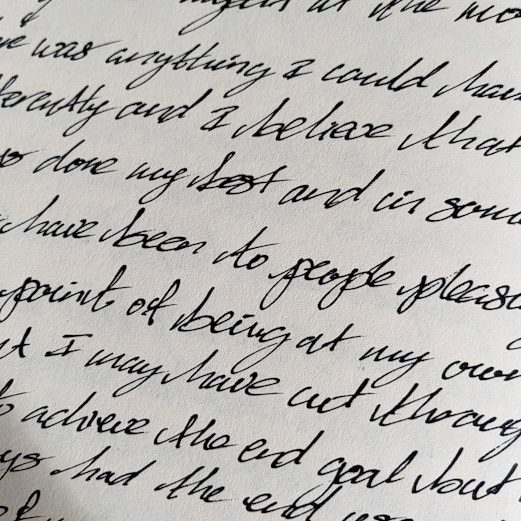 myself at the mo
was anything I could hav
ferently and I believe that
so done my best and in som
have been to people please
point of being at my own
t I may have cut throug
to achieve the end goal but
ys had the end